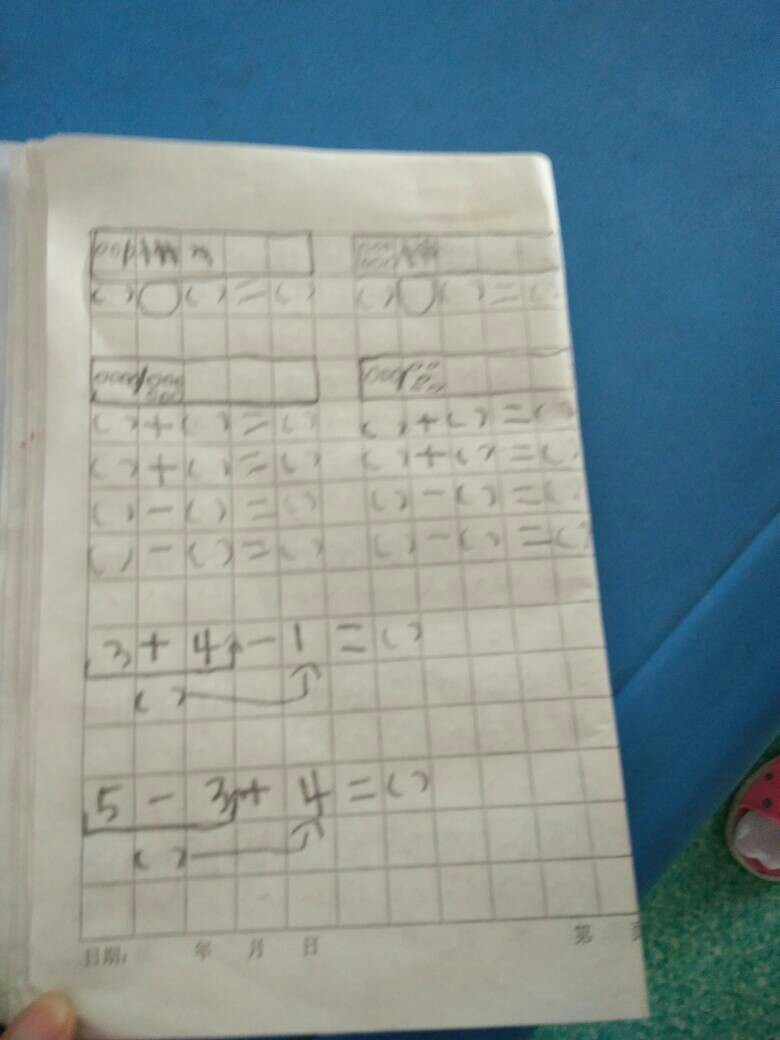 ( ) ○ ( ) = ( ) ( ) ○ ( ) = ( )
( ) + ( ) = ( ) ( ) + ( ) = ( )
( ) + ( ) = ( ) ( ) + ( ) = ( )
( ) - ( ) = ( ) ( ) - ( ) = ( )
( ) - ( ) = ( ) ( ) - ( ) = ( )
3 + 4 - 1 = ( )
( )
5 - 3 + 4 = ( )
( )
日期: 年 月 日 第